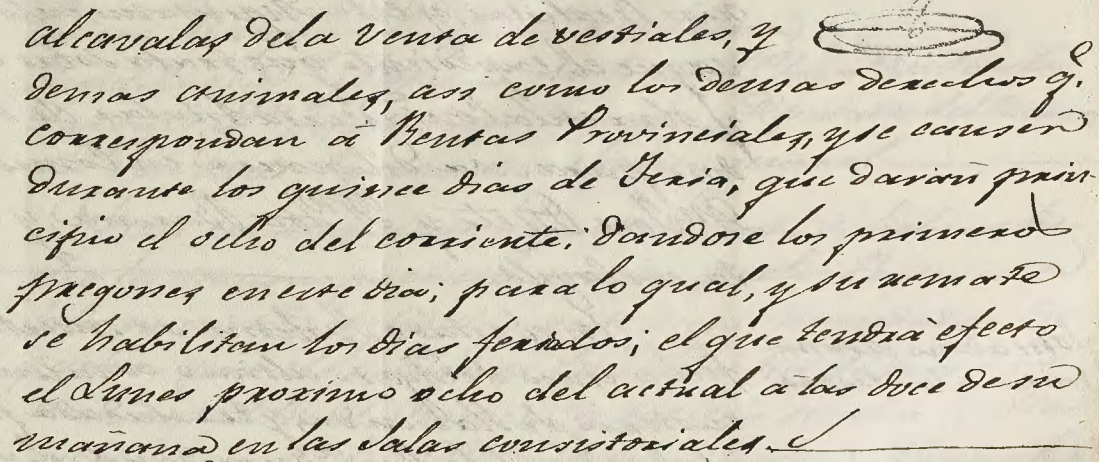 alcavalas dela venta de vestiales, y
demas animales, asi como los demas derechos q.e
correspondan á Rentas Provinciales, y se causen
durante los quince dias de Feria, que darán prin-
cipio el ocho del corriente; dandose los primeros
pregones en este dia; para lo qual, y su remate
se habilitan los dias feriados; el que tendrá efecto
el Lunes proximo ocho del actual á las doce de su
mañana en las Salas consistoriales.